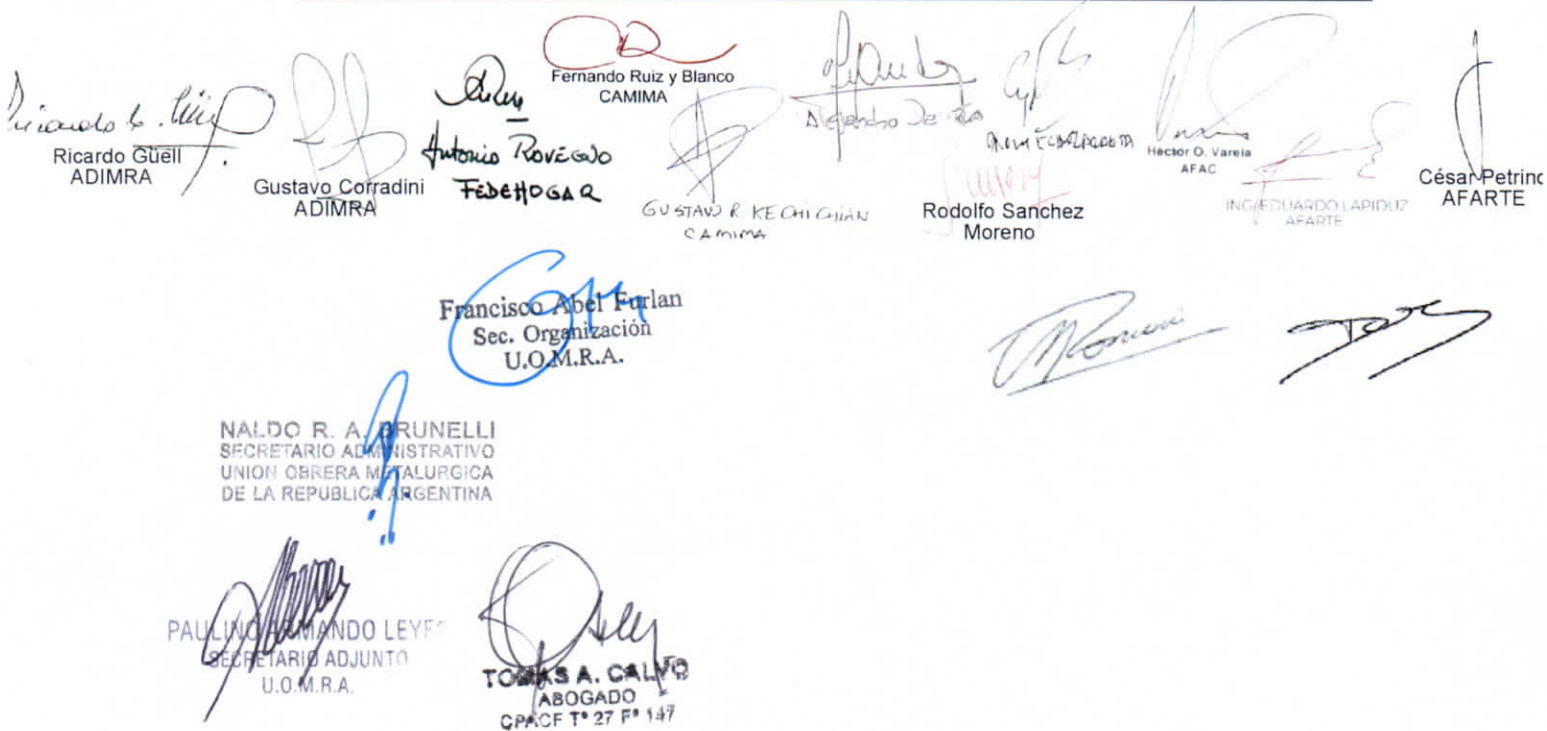 Fernando Ruiz y Blanco
CAMIMA
Ricardo Güell
ADIMRA
Gustavo Corradini
ADIMRA
Antonio Rovegno
FEDEHOGAR
GUSTAVO R. KECHICHIAN
CAMIMA
Rodolfo Sanchez
Moreno
Hector O. Varela
AFAC
ING. EDUARDO LAPIDUZ
AFARTE
César Petrino
AFARTE
Francisco Abel Furlan
Sec. Organización
U.O.M.R.A.
NALDO R. A. BRUNELLI
SECRETARIO ADMINISTRATIVO
UNION OBRERA METALURGICA
DE LA REPUBLICA ARGENTINA
PAULINO ARMANDO LEYES
SECRETARIO ADJUNTO
U.O.M.R.A.
TOMAS A. CALVO
ABOGADO
CPACF Tº 27 Fº 147